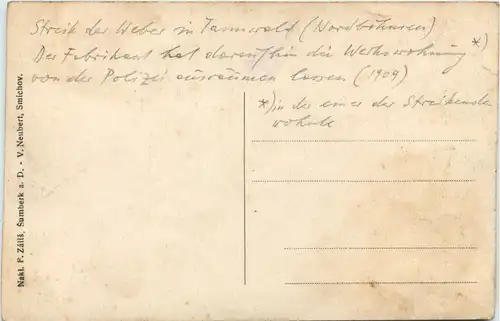 Streik der Weber in Tannwald (Nordböhmen)
Der Fabrikant hat daraufhin die Werkswohnung *)
von der Polizei ausräumen lassen (1909)
*) in der einer der Streikenden
wohnte
Nakl. F. Záliš, Šumberk a. D. - V. Neubert, Smíchov.